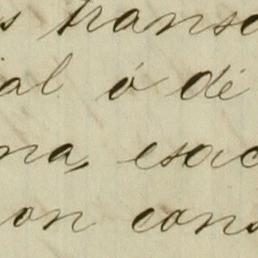 s trans
ial ó dé
na, esac
on cons